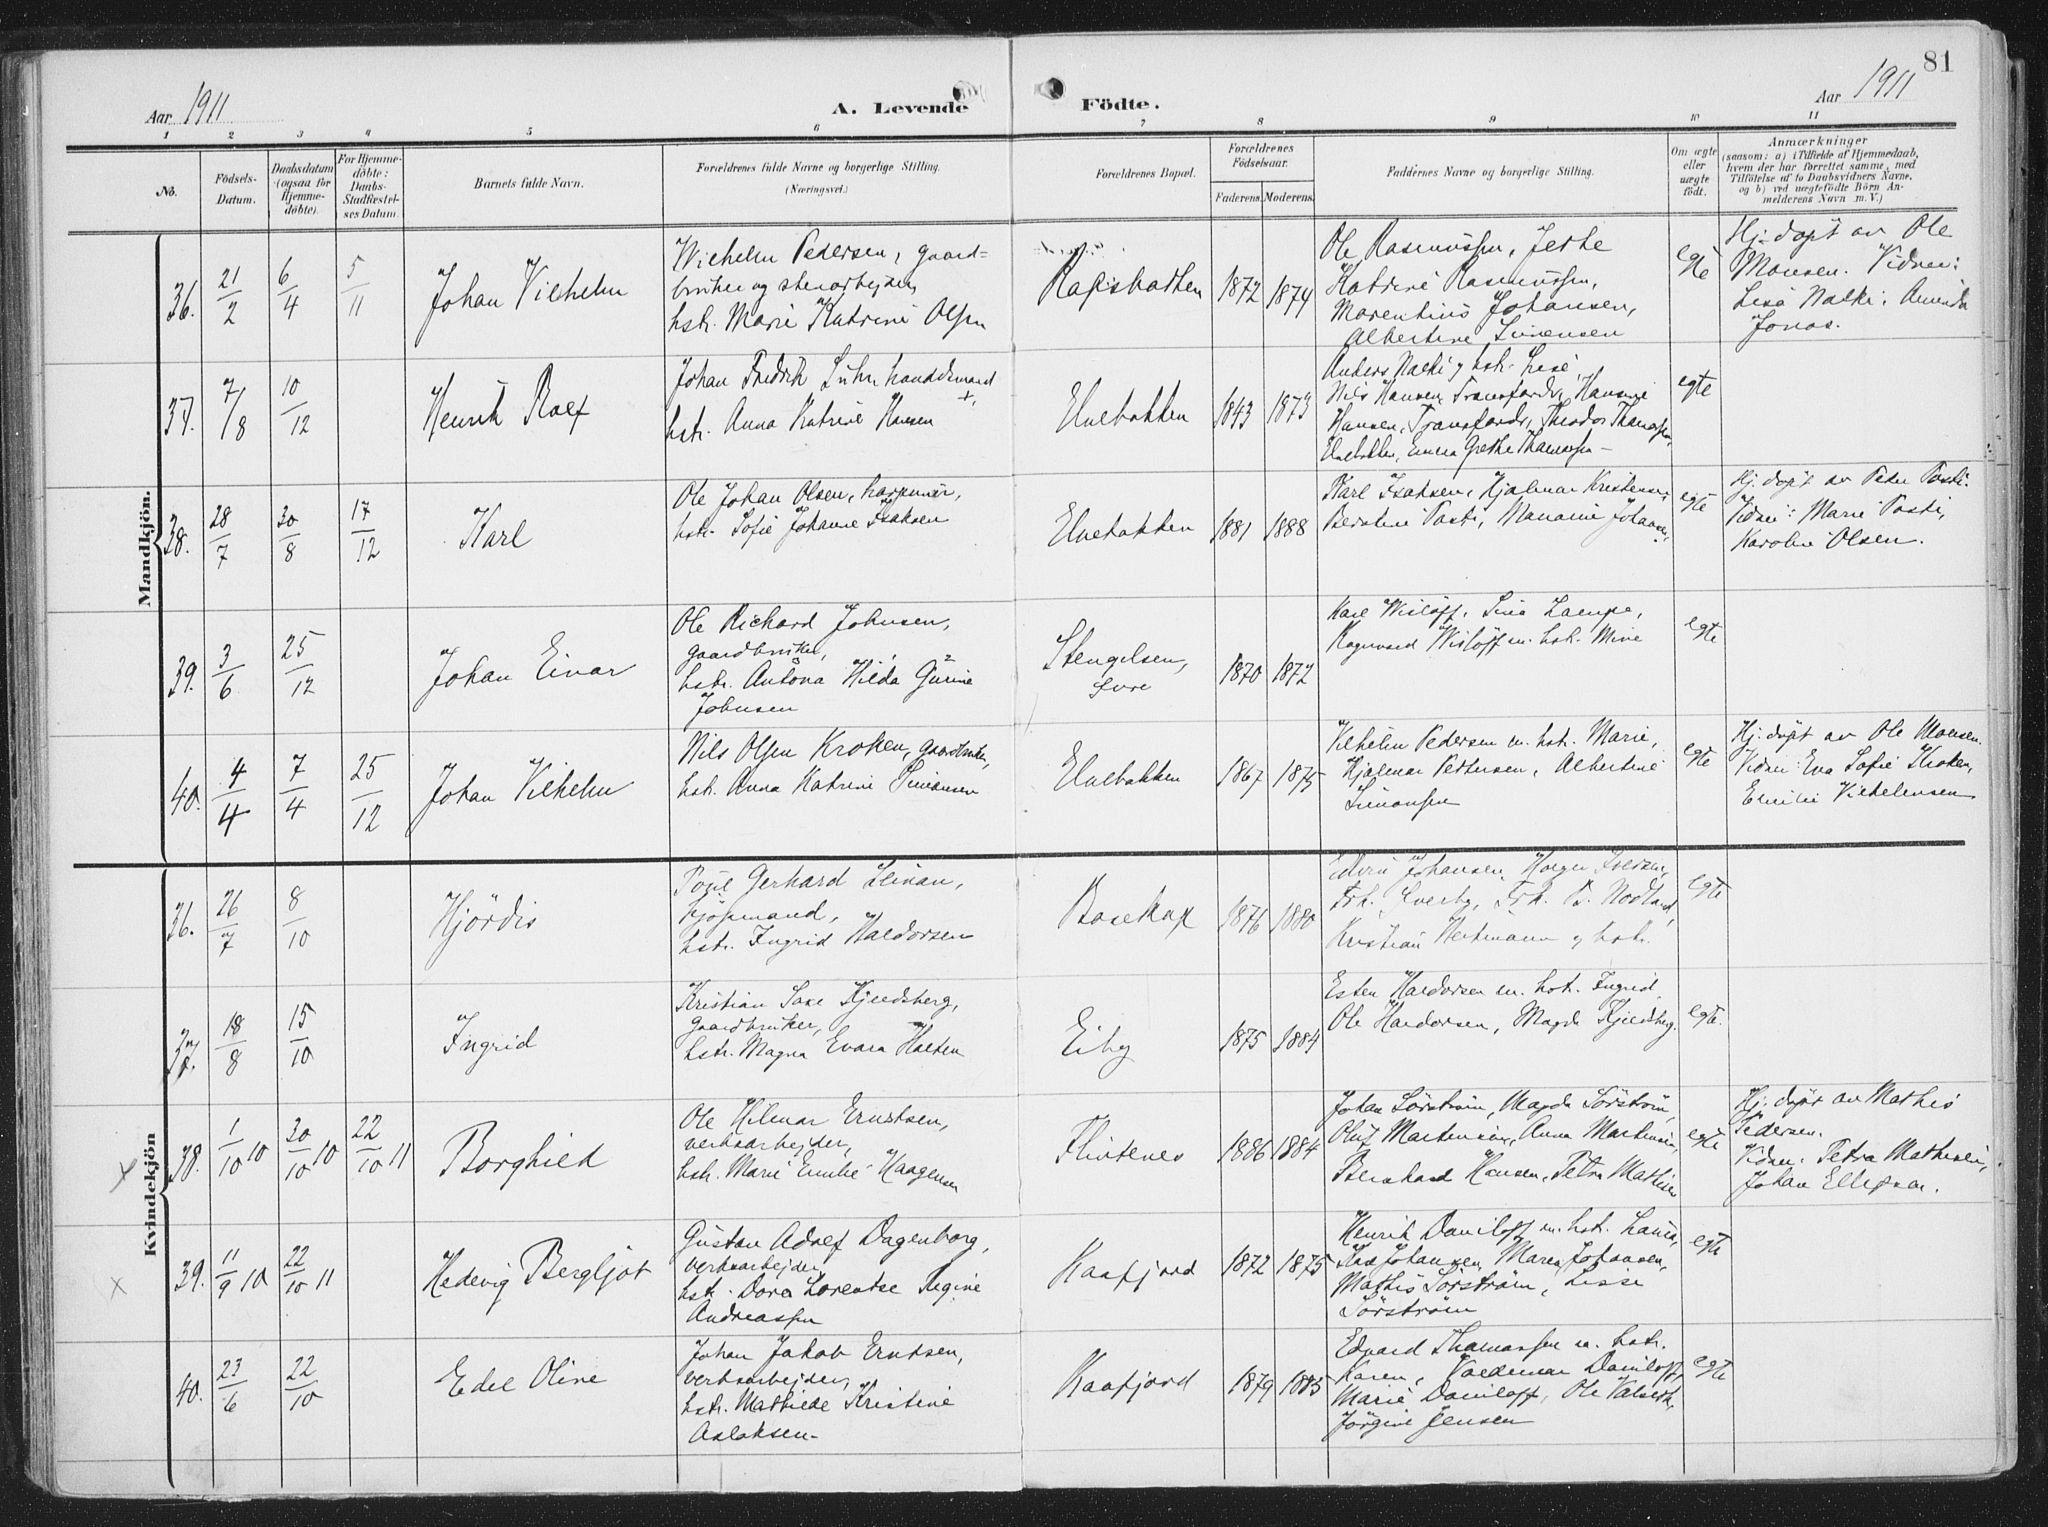 81
Aar 1911
A. Levende Födte.
Aar 1911
1 2 3 4 5 6 7 8 9 10 11
No.
Födsels-
Datum.
Daabsdatum
(ogsaa for
Hjemme-
döbte).
For Hjemme-
döbte:
Daabs-
Stadfæstel-
ses Datum.
Barnets fulde Navn.
Forældrenes fulde Navne og borgerlige Stilling.
(Næringsvei.)
Forældrenes Bopæl.
Forældrenes
Födselsaar.
Faderens. Moderens.
Faddernes Navne og borgerlige Stilling.
Om ægte
eller
uægte
födt.
Anmærkninger
(saasom: a) i Tilfælde af Hjemmedaab,
hvem der har forrettet samme, med
Tilföielse af to Daabsvidners Navne,
og b) ved uægtefödte Börn An-
melderens Navn m. V.)
Mandkjön.
36. 21/2 6/4 5/11
Johan Vilhelm
Wilhelm Pedersen, gaard-
bruker og stenarbejder,
hstr. Marie Katrine Olsen
1872 1874
Ole Rasmussen, Jethe
Katrine Rasmussen,
Morentius Johansen,
Albertine Simensen
egte
Hj. døpt av Ole
Monsen. Vidner:
Lisa Nalki. Amanda
Jonas.
37. 7/8 10/12
Henrik Rolf
Johan Fredrik Suhr handelsmand +,
hstr. Anna Katrine Hansen
Elvebakken
1843 1873
Anders Nalki og hstr. Lise,
Nils Hansen, Transfarelv, Hansine
Hansen, Transfarelv, Theodor Thomassen,
Elvebakken, Emma Grethe Thomassen
egte
38. 28/7 30/8 17/12
Karl
Ole Johan Olsen, harpunér,
hstr. Sofie Johanne Isaksen
Elvebakken
1881 1888
Karl Isaksen, Hjalmar Kristensen,
Berntine Posti, Marianne Johansen,
egte
Hj. døpt av Peder Posti.
Vidner: Marie Posti,
Karoline Olsen.
39. 3/6 25/12
Johan Einar
Ole Richard Johnsen,
gaardbruker,
hstr. Antona Hilda Gurine
Johnsen
Stengelsen,
Øvre
1870 1872
Karl Wisløff, Lina Lampe,
Ragnvald Wisløff m. hstr. Mine
egte
40. 4/4 7/4 25/12
Johan Vilhelm
Nils Olsen Kroken, gaardbruker,
hstr. Anna Katrine Simonsen
Elvebakken
1867 1875
Vilhelm Pedersen m. hstr. Marie,
Hjalmar Pettersen, Albertine
Simonsen
egte
Hj. døpt av Ole Monsen.
Vidner: Eva Sofie Kroken,
Emilie Vilhelmsen
Kvindekjön
36. 26/7 8/10
Hjördis
Gerhard Leinan,
kjøpmand,
hstr. Ingrid Haldorsen
Bosekop
1876 1880
Edvin Johansen, Holger Iversen,
Frk. Sverby, Frk. B. Nodland,
Kristian Heitmann og hstr.
egte
37. 18/8 15/10
Ingrid
Kristian Saxe Kjeldsberg,
gaardbruker,
hstr. Magna Evara Holten
Eiby
1875 1884
Esten Haldorsen m. hstr. Ingrid
Ole Haldorsen, Magda Kjeldsberg
egte.
x 38. 1/10 10 30/10 10 22/10 11
Borghild
Ole Hilmar Erntsen,
verksarbejder,
hstr. Marie Emilie Haagensen
Flintenes
1886 1884
Johan Sörström, Magda Sörström,
Oluf Martensen, Anna Martensen,
Bernhard Hansen, Petra Mathisen
egte
Hj. døpt av Mathis
Pedersen.
Vidner: Petra Mathisen,
Johan Ellefson.
x 39. 11/9 10 22/10 11
Hedevig Bergljot
Gustav Adolf Dagenborg,
verksarbejder,
hstr. Dora Lorentse Regine
Andreassen
Kaafjord
1872 1875
Henrik Daniloff m. hstr. Laura,
Johansen, Maren Johansen,
Mathis Sörström, Lisse
Sörström
egte
40. 23/6 22/10
Edel Oline
Johan Jakob Erntsen,
verksarbejder,
hstr. Mathilde Kristine
Aslaksen.
Kaafjord
1879 1885
Edvard Thomassen m. hstr.
Karen, Valdemar Daniloff,
Marie Daniloff, Ole
Jörgine Jensen
egte